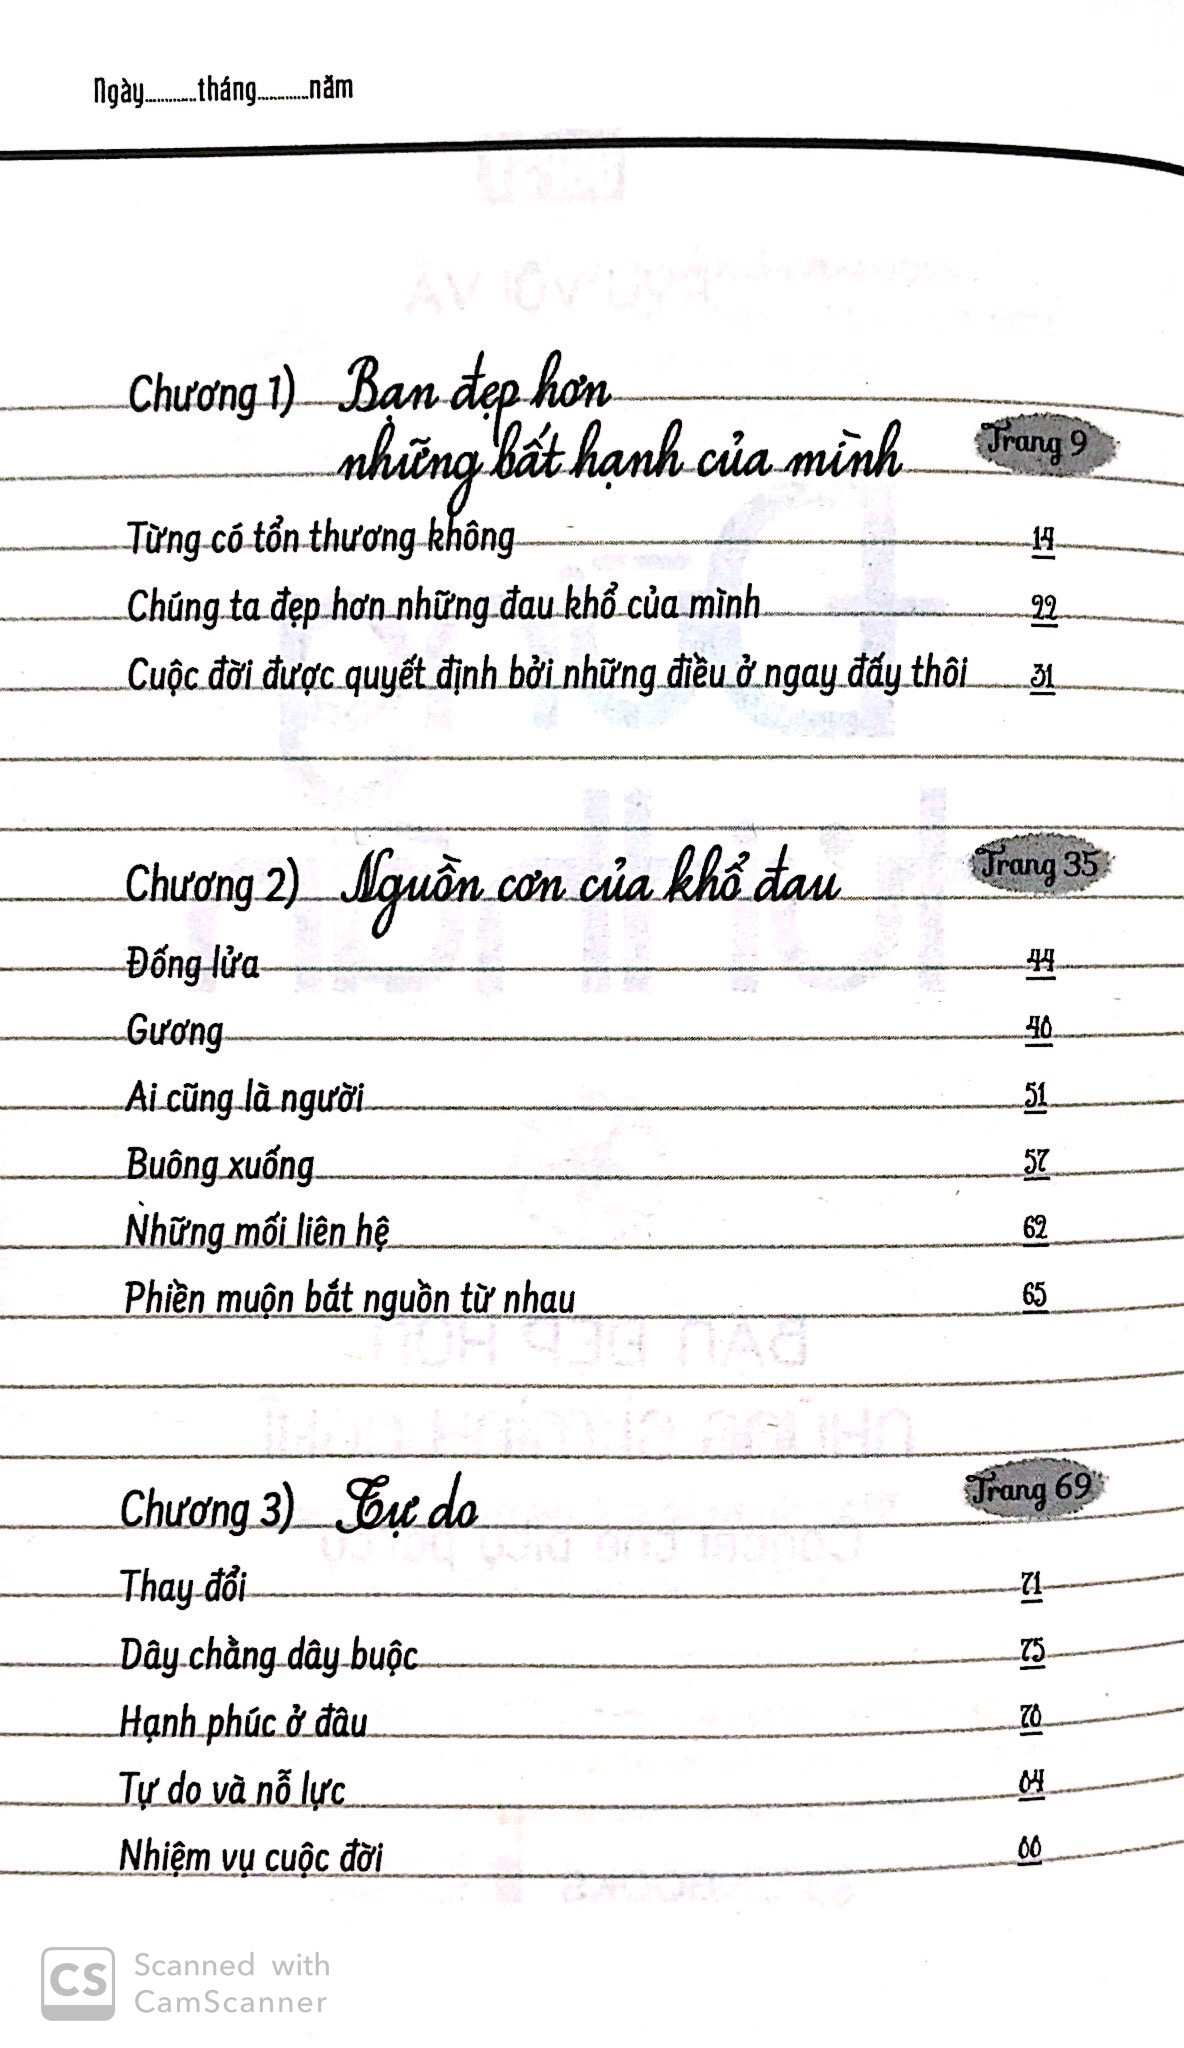 Ngày............tháng............năm
Chương 1) Bạn đẹp hơn
những bất hạnh của mình Trang 9
Từng có tổn thương không 14
Chúng ta đẹp hơn những đau khổ của mình 22
Cuộc đời được quyết định bởi những điều ở ngay đấy thôi 31
Chương 2) Nguồn cơn của khổ đau Trang 35
Đống lửa 44
Gương 48
Ai cũng là người 51
Buông xuống 57
Những mối liên hệ 62
Phiền muộn bắt nguồn từ nhau 65
Chương 3) Tự do Trang 69
Thay đổi 71
Dây chằng dây buộc 75
Hạnh phúc ở đâu 78
Tự do và nỗ lực 84
Nhiệm vụ cuộc đời 88
CS Scanned with
CamScanner